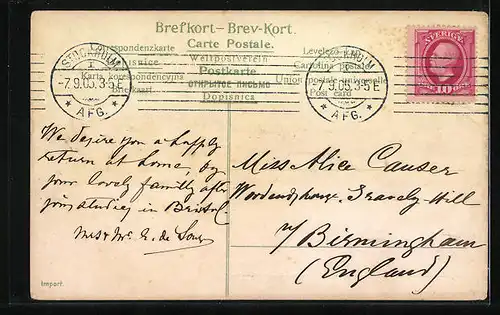 Brefkort - Brev-Kort.
Carte Postale.
Correspondenzkarte Levelező
Weltpostverein
Dopisnice Cartolina postale
Postkarte
Karta korespondencyjna Union postale universelle
ОТКРЫТОЕ ПИСЬМО
Brefkaart Post card
Dopisnica
STOCKHOLM
1
-7.9.05. 3-5 E
* AFG. *
STOCKHOLM
-7.9.05. 3-5 E
* AFG. *
SVERIGE
10
We desire you a happy
return at home, by
your lovely family after
your studies in Bristol.
Import.
Miss Alice Causer
Gravely-Hill
n/ Birmingham
(England)